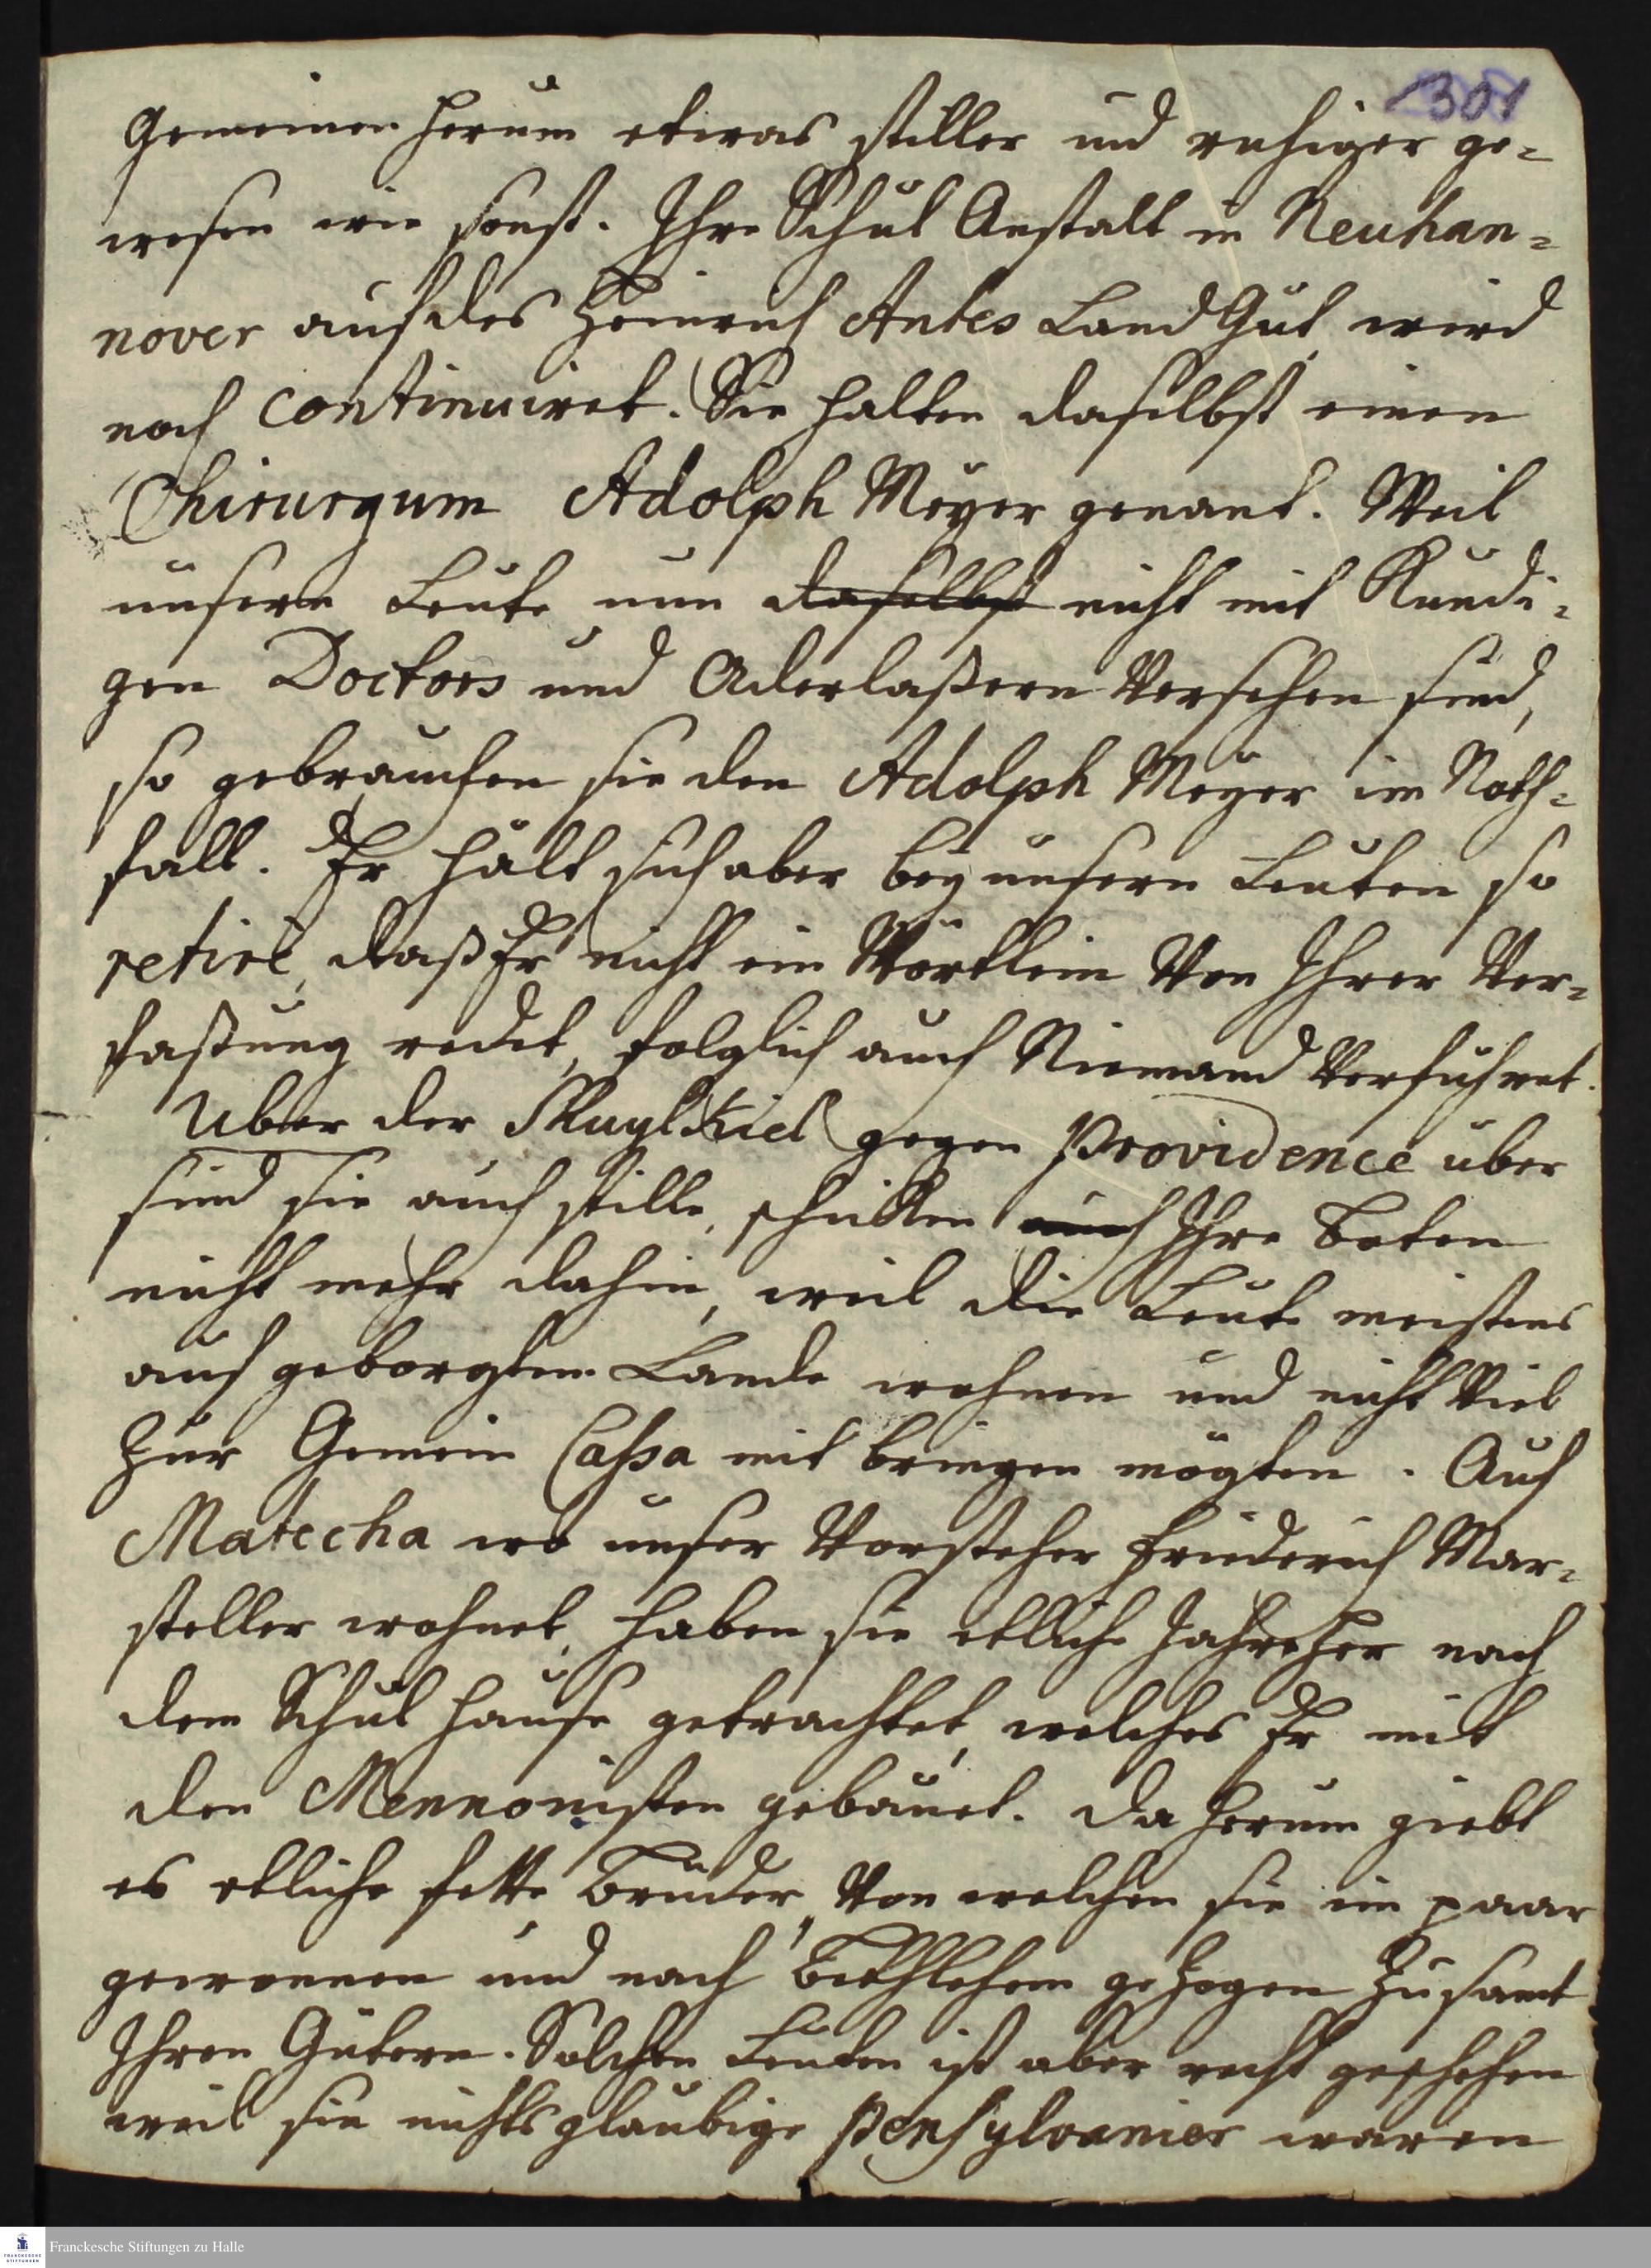 301
Gemeinen herum etwas stiller und ruhiger ge-
wesen wie sonst. Ihre Schul Anstalt in Neuhan-
nover auf des Heinrich Antes Land Gut wird
noch continuiret. Sie halten daselbst einen
Chirurgum Adolph Meyer genant. Weil
unsere Leute nun daselbst nicht mit Kundi-
gen Doctors und Aderlaßern versehen sind,
so gebrauchen sie den Adolph Meyer im Noth-
fall. Er hält sich aber bey unsern Leuten so
retiré, daß Er nicht ein Wörtlein von Ihrer Ver-
faßung redet, folglich auch Niemand verführet.
Uber der Skuylkiel gegen Providence über
sind sie auch stille, schicken auch Ihre Boten
nicht mehr dahin, weil die Leute meistens
auf geborgtem Lande wohnen und nicht viel
zur Gemein Cassa mit bringen mögten. Auf
Matecha wo unser Vorsteher Friederich Mar-
steller wohnet, haben sie etliche Jahr her nach
dem Schul Hause getrachtet, welches Er mit
den Mennonisten gebauet. Da herum giebt
es etliche fette Brüder, von welchen sie ein paar
gewonnen und nach Bethlehem gezogen zusamt
Ihren Gütern. Solchen Leuten ist aber recht geschehen
weil sie nichtsglaubige Pensylvanier waren
Franckesche Stiftungen zu Halle